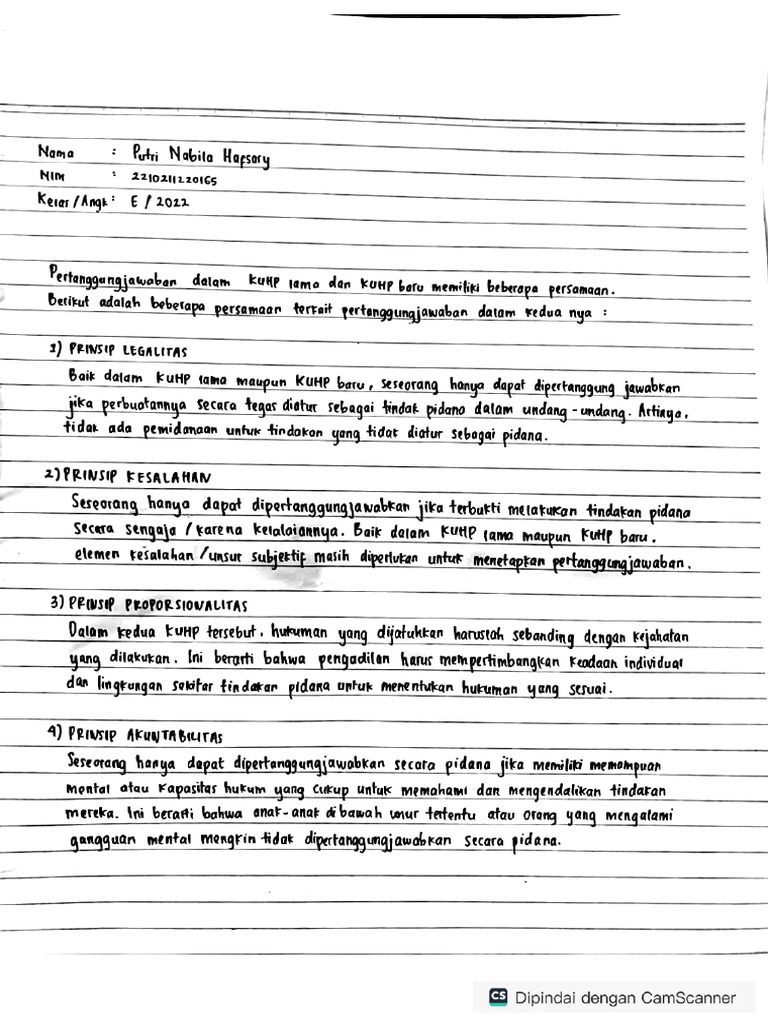 Nama : Putri Nabila Hafsary
NIM : 2210211220165
Kelas/Angk : E / 2022
Pertanggungjawaban dalam KUHP lama dan KUHP baru memiliki beberapa persamaan.
Berikut adalah beberapa persamaan terkait pertanggungjawaban dalam kedua nya :
1) PRINSIP LEGALITAS
Baik dalam KUHP lama maupun KUHP baru, seseorang hanya dapat dipertanggung jawabkan
jika perbuatannya secara tegas diatur sebagai tindak pidana dalam undang-undang. Artinya,
tidak ada pemidanaan untuk tindakan yang tidak diatur sebagai pidana.
2) PRINSIP KESALAHAN
Seseorang hanya dapat dipertanggungjawabkan jika terbukti melakukan tindakan pidana
secara sengaja / karena kelalaiannya. Baik dalam KUHP lama maupun KUHP baru.
elemen kesalahan / unsur subjektif masih diperlukan untuk menetapkan pertanggungjawaban.
3) PRINSIP PROPORSIONALITAS
Dalam kedua KUHP tersebut, hukuman yang dijatuhkan haruslah sebanding dengan kejahatan
yang dilakukan. Ini berarti bahwa pengadilan harus mempertimbangkan keadaan individual
dan lingkungan sekitar tindakan pidana untuk menentukan hukuman yang sesuai.
4) PRINSIP AKUNTABILITAS
Seseorang hanya dapat dipertanggungjawabkan secara pidana jika memiliki memampuan
mental atau kapasitas hukum yang cukup untuk memahami dan mengendalikan tindakan
mereka. Ini berarti bahwa anak-anak dibawah umur tertentu atau orang yang mengalami
gangguan mental mungkin tidak dipertanggungjawabkan secara pidana.
CS Dipindai dengan CamScanner